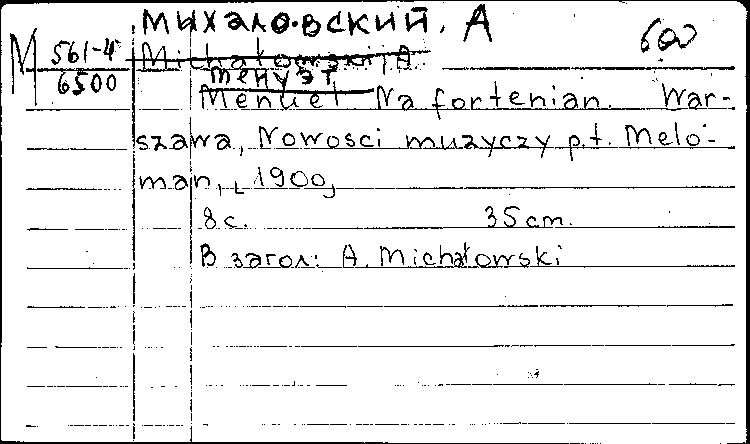 Михаловский, А
М 561-4 600
6500
Michałowski, A.
Менуэт
Menuet Na fortepian. War-
szawa, Nowosci muzyczy p.t. Melo-
man, [1900]
8 с. 35 cm.
В загол: A. Michałowski